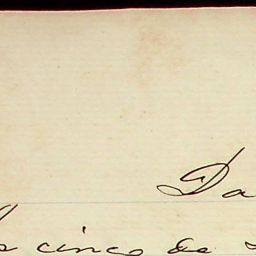 Da
cinco de